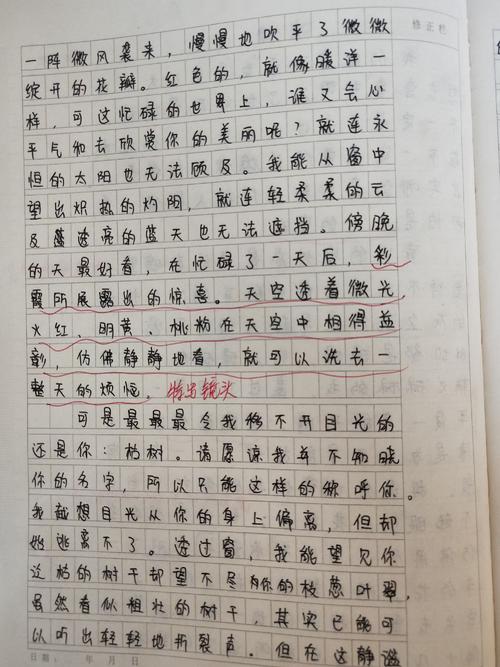 修正栏
一阵微风袭来，慢慢地吹平了微微
绽开的花瓣。红色的，就像暖洋一
样，可这忙碌的世界上，谁又会心
平气和去欣赏你的美丽呢？就连永
恒的太阳也无法顾及。我能从窗中
望出炽热的灼阳，就连轻柔柔的云
及蓝透亮的蓝天也无法遮挡。傍晚
的天最好看，在忙碌了一天后，彩
霞所展露出的惊喜。天空透着微光
火红、明黄、桃粉在天空中相得益
彰，仿佛静静地看，就可以洗去一
整天的烦恼。特写镜头
可是最最最令我移不开目光的
还是你：枯树。请愿谅我并不知晓
你的名字，所以只能这样的称呼你。
我越想目光从你的身上偏离，但却
始逃离不了。透过窗，我能望见你
这枯的树干却望不尽有你的枝葱叶翠，
虽然看似粗壮的树干，其实已能可
以听出轻轻地折裂声。但在这静谧
日期： 年 月 日